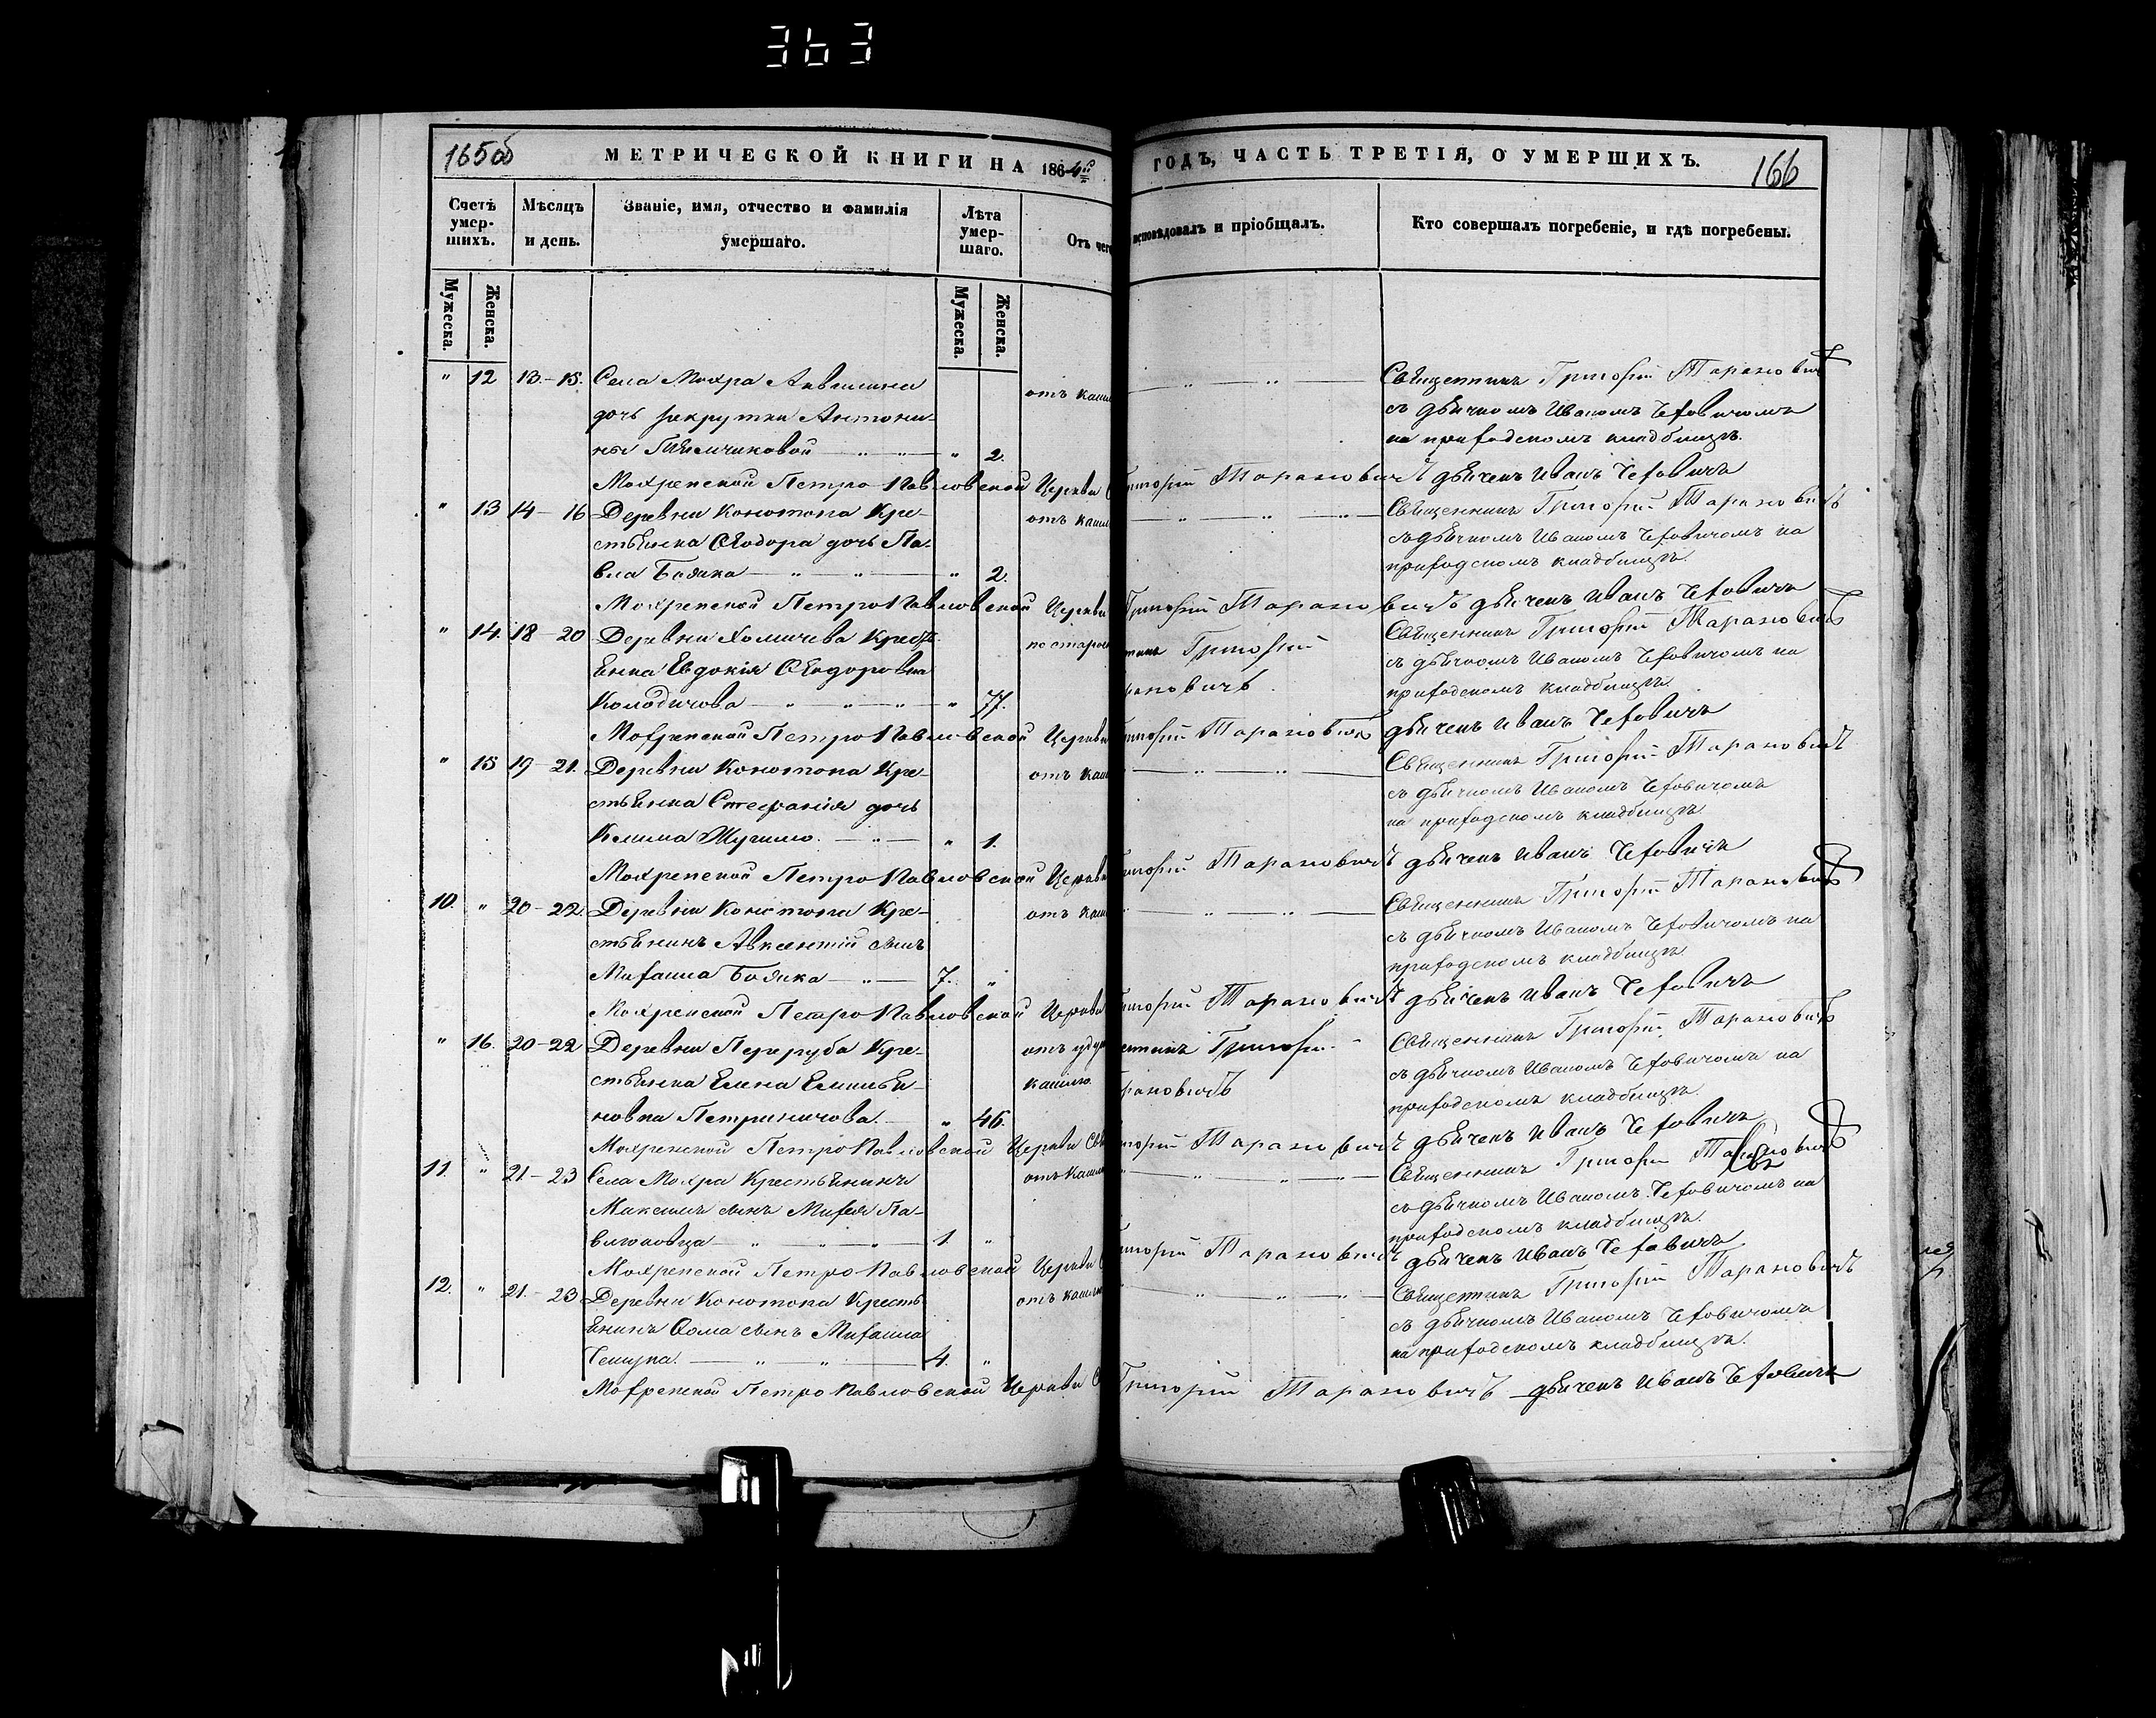 363
165об
МЕТРИЧЕСКОЙ КНИГИ НА 1864й ГОДЪ, ЧАСТЬ ТРЕТІЯ, О УМЕРШИХЪ.
166
Счетъ умершихъ.
Мѣсяцъ и день.
Званіе, имя, отчество и фамилія умершаго.
Лѣта умершаго.
Отъ чег
исповѣдовалъ и пріобщалъ.
Кто совершалъ погребеніе, и гдѣ погребены.
Мужеска.
Женска.
Мужеска.
Женска.
" 12 13-15. Села Мохра Акилина отъ каш Священникъ Григорій Тарановичъ
дочь рекрутки Антони- съ дьячкомъ Иваномъ Чеховичомъ
ны " 2. на приходскомъ кладбищѣ.
Мохренской Петро-Павловской Церкви Григорій Тарановичъ дьячекъ Иванъ Чеховичъ
" 13 14-16 Деревни Конотопа Кре- отъ каш Священникъ Григорій Тарановичъ
стьянка Ѳеодора дочь Па- съ дьячкомъ Иваномъ Чеховичомъ на
вла Бадяка " 2. приходскомъ кладбищѣ.
Мохренской Петро Павловской Церкви Григорій Тарановичъ дьячекъ Иванъ Чеховичъ
" 14. 18-20 Деревни Хомичева Крест- по старо Григорій Священникъ Григорій Тарановичъ
янка Евдокія Ѳеодоровна рановичъ съ дьячкомъ Иваномъ Чеховичомъ на
Колодичова " 77. приходскомъ кладбищѣ.
Мохренской Петро Павловской Церкви Григорій Тарановичъ дьячекъ Иванъ Чеховичъ
" 15 19-21. Деревни Конотопа Кре- отъ каш Священникъ Григорій Тарановичъ
стьянка Стефанія дочь съ дьячкомъ Иваномъ Чеховичомъ
Климa " 1. на приходскомъ кладбищѣ.
Мохренской Петро Павловской Церкви Григорій Тарановичъ дьячекъ Иванъ Чеховичъ
10. " 20-22. Деревни Конотопа Кре- отъ каш Священникъ Григорій Тарановичъ
стьянинъ Авксентій сынъ съ дьячкомъ Иваномъ Чеховичомъ на
Михаила Бадяка 7. " приходскомъ кладбищѣ.
Мохренской Петро Павловской Церкви Григорій Тарановичъ дьячекъ Иванъ Чеховичъ
" 16. 20-22 Деревни Переруба Кре- отъ уду Григорій Священникъ Григорій Тарановичъ
стьянка Елена Емилья- кашлю. рановичъ съ дьячкомъ Иваномъ Чеховичомъ на
новна Петриничова. " 46. приходскомъ кладбищѣ.
Мохренской Петро Павловской Церкви Свя Григорій Тарановичъ дьячекъ Иванъ Чеховичъ
11. " 21-23 Села Мохра Крестьянинъ отъ кашл Священникъ Григорій Тарановичъ
Максимъ сынъ Михея Па- съ дьячкомъ Иваномъ Чеховичомъ на
влюковца 1. " приходскомъ кладбищѣ.
Мохренской Петро Павловской Церкви Григорій Тарановичъ дьячекъ Иванъ Чеховичъ
12. " 21-23 Деревни Конотопа Кресть- отъ кашл Священникъ Григорій Тарановичъ
янинъ Ѳома сынъ Михаила съ дьячкомъ Иваномъ Чеховичомъ
4. " на приходскомъ кладбищѣ.
Мохренской Петро Павловской Церкви Григорій Тарановичъ дьячекъ Иванъ Чеховичъ